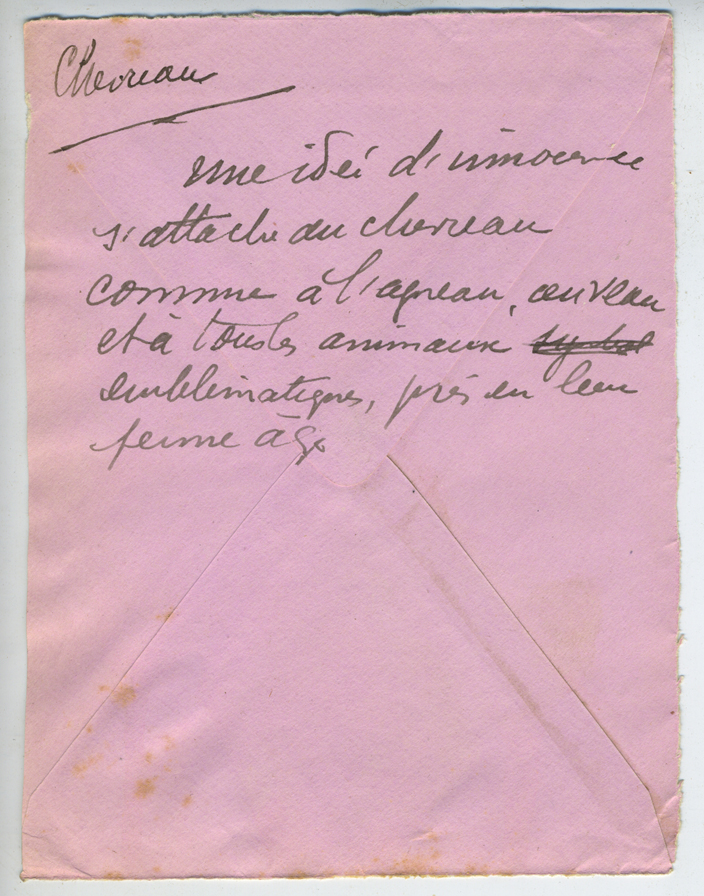 Chevreau
une idée d'innocence
s'attache au chevreau
comme à l'agneau, au veau
et à tous les animaux symbol
emblématiques, pris en leur
jeune âge